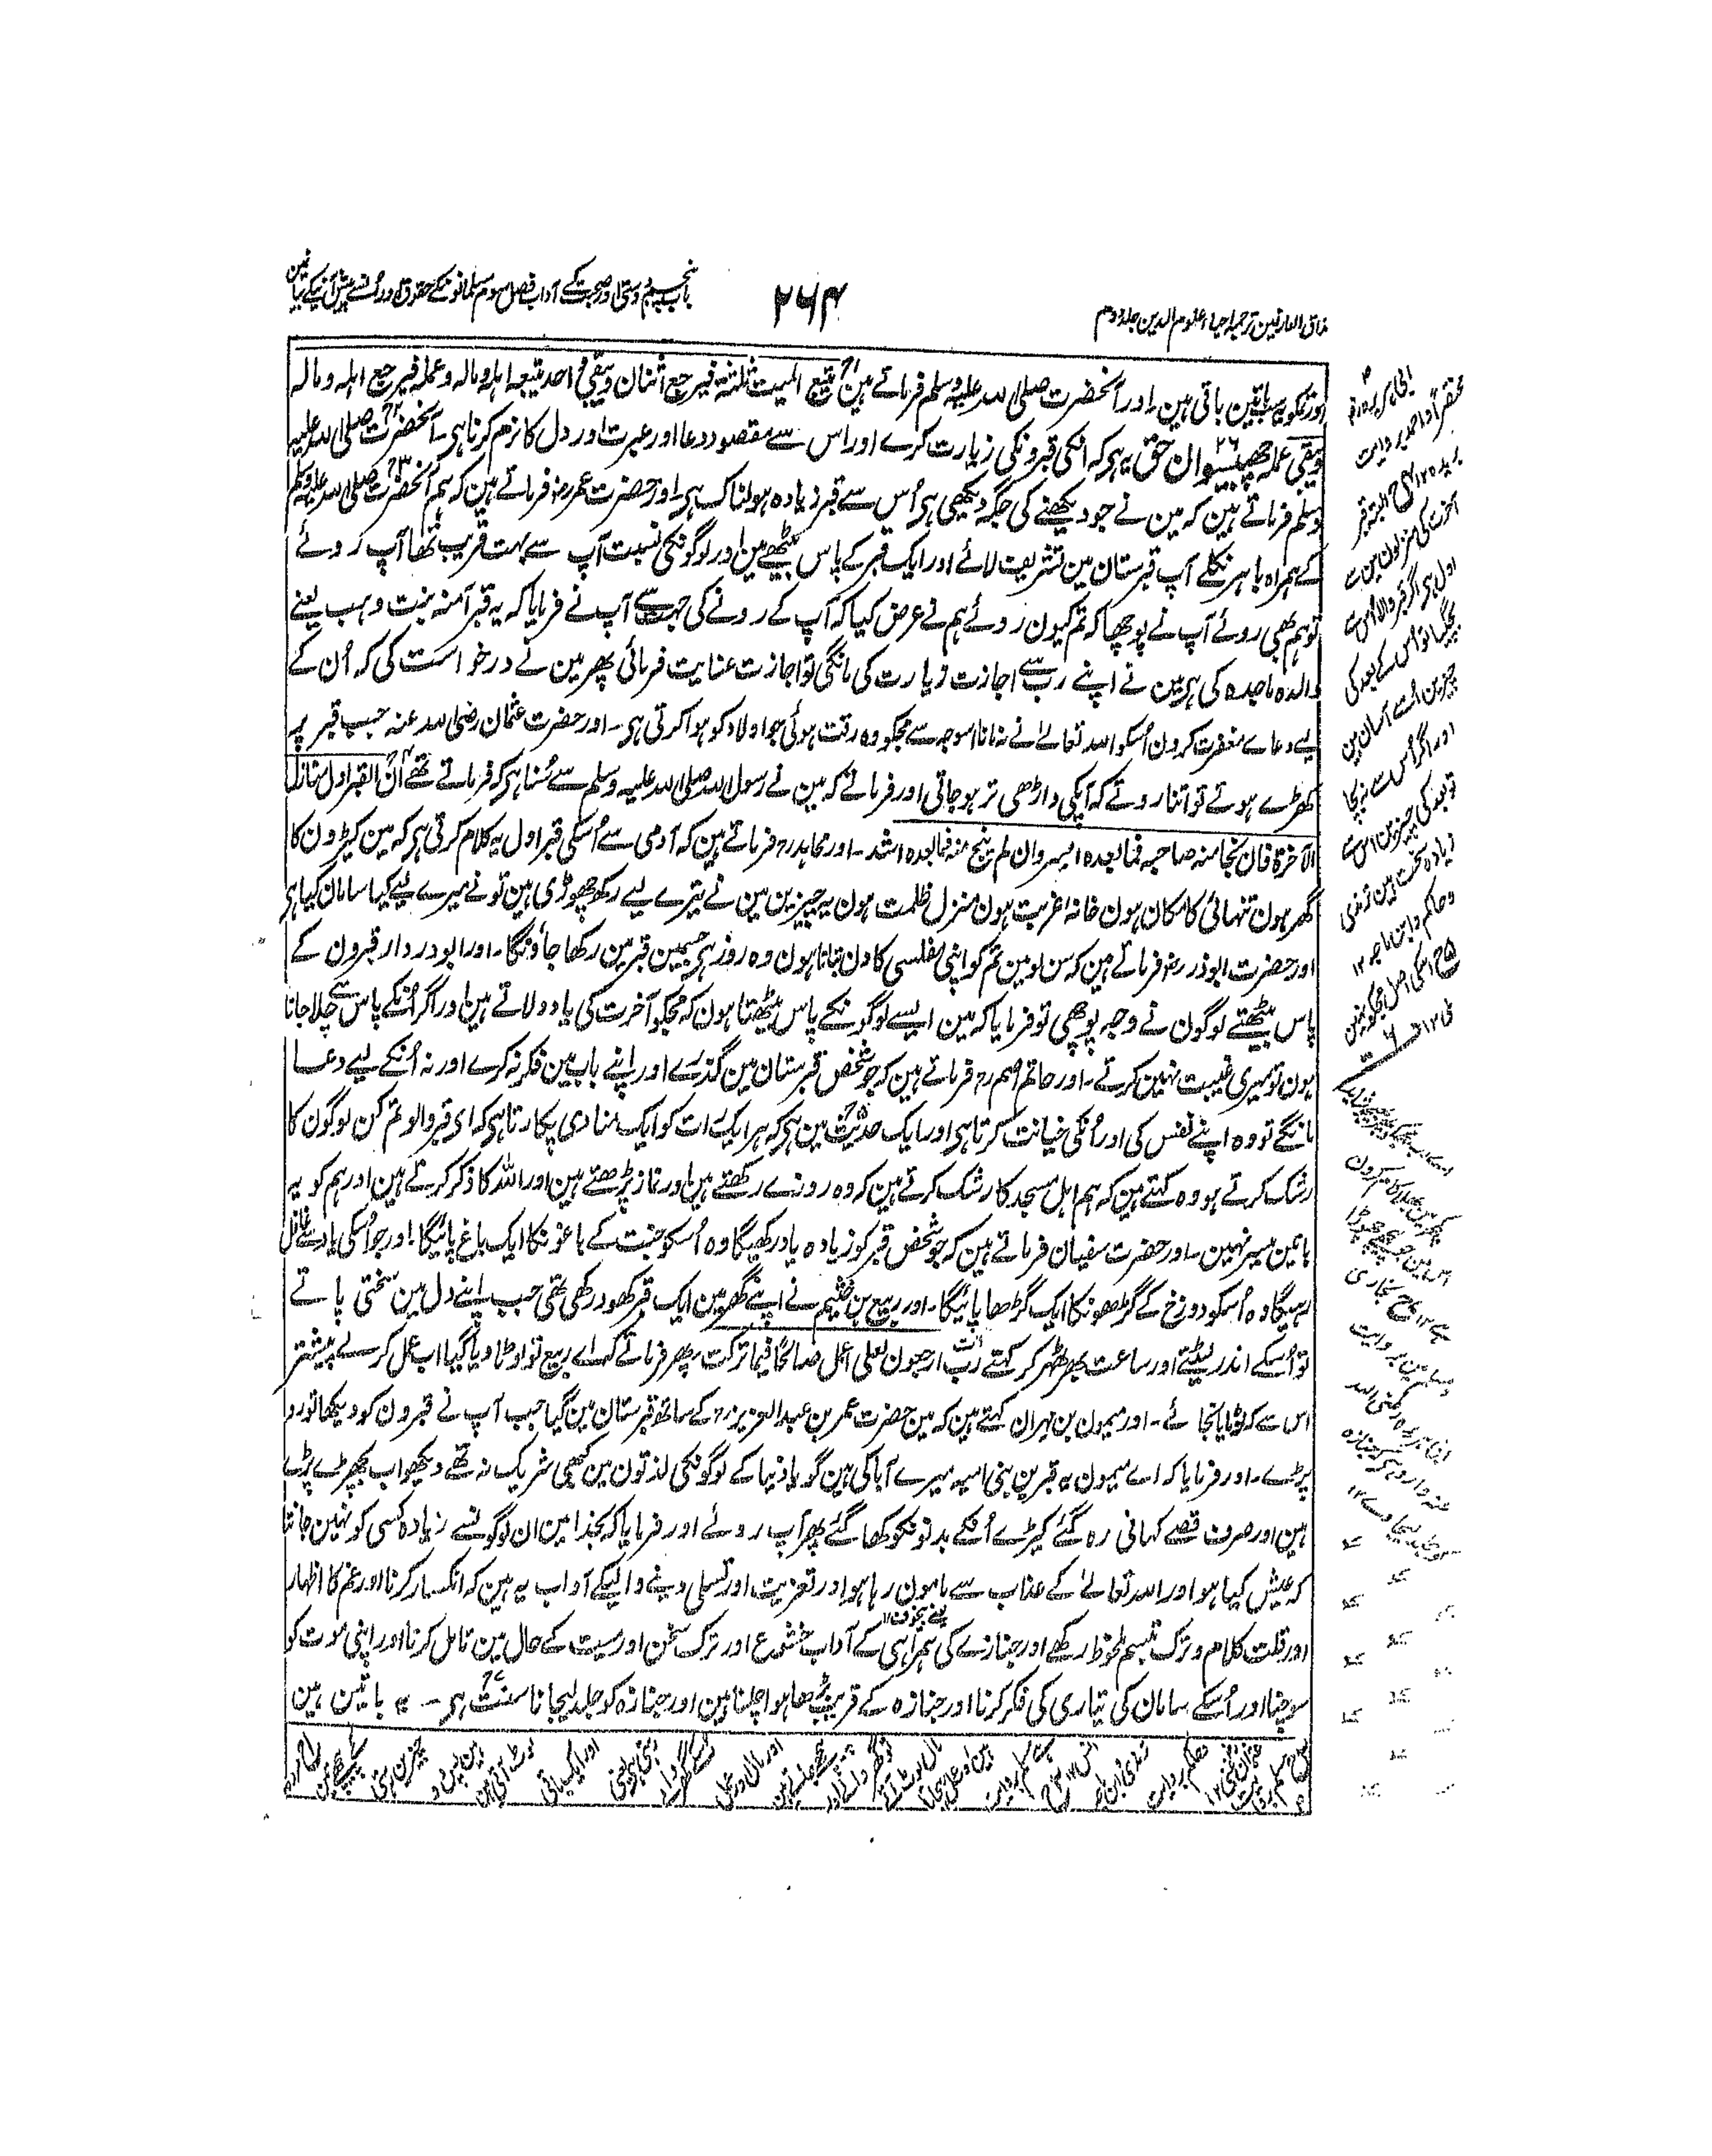 مذاق العارفین ترجمہ احیاء علوم الدین جلد دوم
۲۶۴
باب پنجم دوستی اور صحبت کے آداب فصل سوم مسلمانونکے حقوق اور اُنسے پیش آنیکے بیان مین
اور تمکو یہ سب باتین باقی ہین۔ اور آنحضرت صلی اللہ علیہ وسلم فرماتے ہین یتبع المیت ثلثۃ فیرجع اثنان ویبقی احد یتبعہ اہلہ ومالہ وعملہ فیرجع اہلہ ومالہ
ویبقی عملہ چھبیسوان حق یہ ہی کہ انکی قبرونکی زیارت کرے اور اس سے مقصود دعا اور عبرت اور دل کا نرم کرنا ہی۔ آنحضرت صلی اللہ علیہ
وسلم فرماتے ہین کہ مین نے جو دیکھنے کی جگہ دیکھی ہی اُس سے قبر زیادہ ہولناک ہی۔ اور حضرت عمر رضہ فرماتے ہین کہ ہم آنحضرت صلی اللہ علیہ وسلم
کے ہمراہ باہر نکلے آپ قبرستان مین تشریف لائے اور ایک قبر کے پاس بیٹھے مین اور لوگونکی نسبت آپ سے بہت قریب تھا آپ روئے
تو ہم بھی روئے آپ نے پوچھا کہ تم کیون روئے ہم نے عرض کیا کہ آپ کے رونے کی جہت سے آپ نے فرمایا کہ یہ قبر آمنہ بنت وہب یعنے
والدہ ماجدہ کی ہی مین نے اپنے رب سے اجازت زیارت کی مانگی تو اجازت عنایت فرمائی پھر مین نے درخواست کی کہ اُن کے
لیے دعاے مغفرت کرون اُسکو اللہ تعالےٰ نے نہ مانا اسوجہ سے مجکو وہ رقت ہوئی جو اولاد کو ہوا کرتی ہی۔ اور حضرت عثمان رضی اللہ عنہ جب قبر پر
کھڑے ہوتے تو اتنا روتے کہ آپکی داڑھی تر ہو جاتی اور فرماتے کہ مین نے رسول اللہ صلی اللہ علیہ وسلم سے سُنا ہی کہ فرماتے تھے ان القبر اول منازل
الآخرۃ فان نجا منہ صاحبہ فما بعدہ ایسر وان لم ینج منہ فما بعدہ اشد۔ اور مجاہد رح فرماتے ہین کہ آدمی سے اُسکی قبر اول یہ کلام کرتی ہی کہ مین کیڑون کا
گھر ہون تنہائی کا مکان ہون خانہ غربت ہون منزل ظلمت ہون یہ چیزین مین نے تیرے لیے رکھ چھوڑی ہین تو نے میرے لیے کیا سامان کیا ہی
اور حضرت ابوذر رضہ فرماتے ہین کہ سن لو مین تم کو اپنی مفلسی کا دن بتاتا ہون وہ روز ہی جسمین قبر مین رکھا جاؤنگا۔ اور ابودردار قبرون کے
پاس بیٹھتے لوگون نے وجہ پوچھی تو فرمایا کہ مین ایسے لوگونکے پاس بیٹھتا ہون کہ مجکو آخرت کی یاد دلاتے ہین اور اگر اُنکے پاس سے چلا جاتا
ہون تو میری غیبت نہین کرتے۔ اور حاتم اصم رح فرماتے ہین کہ جو شخص قبرستان مین گذرے اور اپنے باب مین فکر نہ کرے اور نہ اُنکے لیے دعا
مانگے تو وہ اپنے نفس کی اور اُنکی خیانت کرتا ہی اور ایک حدیث مین ہی کہ ہر ایک رات کو ایک منادی پکارتا ہی کہ ای قبر والو تم کن لوگون کا
رشک کرتے ہو وہ کہتے ہین کہ ہم اہل مسجد کا رشک کرتے ہین کہ وہ روزے رکھتے ہین اور نماز پڑھتے ہین اور اللہ کا ذکر کرتے ہین اور ہم کو یہ
باتین میسر نہین۔ اور حضرت سفیان فرماتے ہین کہ جو شخص قبر کو زیادہ یاد رکھیگا وہ اُسکو جنت کے باغونکا ایک باغ پائیگا اور جو اُسکی یاد سے غافل
رہیگا وہ اُسکو دوزخ کے گڑھونکا ایک گڑھا پائیگا۔ اور ربیع بن خثیم نے اپنے گھر مین ایک قبر کھود رکھی تھی جب اپنے دل مین سختی پاتے
تو اُسکے اندر لیٹتے اور ساعت بھر ٹھہر کر کہتے رب ارجعون لعلی اعمل صالحًا فیما ترکت پھر فرماتے کہ اے ربیع تو لوٹا دیا گیا اب عمل کر لے پیشتر
اس سے کہ لوٹایا نجائے۔ اور میمون بن مہران کہتے ہین کہ مین حضرت عمر بن عبد العزیز رح کے ساتھ قبرستان مین گیا جب آپ نے قبرون کو دیکھا تو رو
پڑے۔ اور فرمایا کہ اے میمون یہ قبرین بنی امیہ میرے آبا کی ہین گویا دنیا کے لوگونکی لذتون مین کبھی شریک نہ تھے دیکھو اب بچھڑے پڑے
ہین اور صرف قصے کہانی رہ گئے کیڑے اُنکے بدنونکو کھا گئے پھر آپ روئے اور فرمایا کہ بخدا مین ان لوگونسے زیادہ کسی کو نہین جانتا
کہ عیش کیا ہو اور اللہ تعالےٰ کے عذاب سے مامون رہا ہو اور تعزیت اور تسلی دینے والیکے آداب یہ ہین کہ انکسار کرنا اور غم کا اظہار
اور قلت کلام و ترک تبسم ملحوظ رکھے اور جنازے کی ہمراہی کے آداب خشوع اور ترک سخن اور میت کے حال مین تامل کرنا اور اپنی موت کو
سوچنا اور اُسکے سامان کی تیاری کی فکر کرنا اور جنازہ کے قریب بڑھا ہوا چلنا ہین اور جنازہ کو جلد لیجانا سنت ہی۔ یہ باتین ہین
آخرت کی منزلون مین سے
اول ہی اگر قبر والا اُس سے
بچگیا تو اُس کے بعد کی
چیزین اُس سے آسان ہین
اور اگر اُس سے نہ بچا
تو بعد کی چیزین اس سے
زیادہ سخت ہین ترمذی
وحاکم وابن ماجہ ۱۲